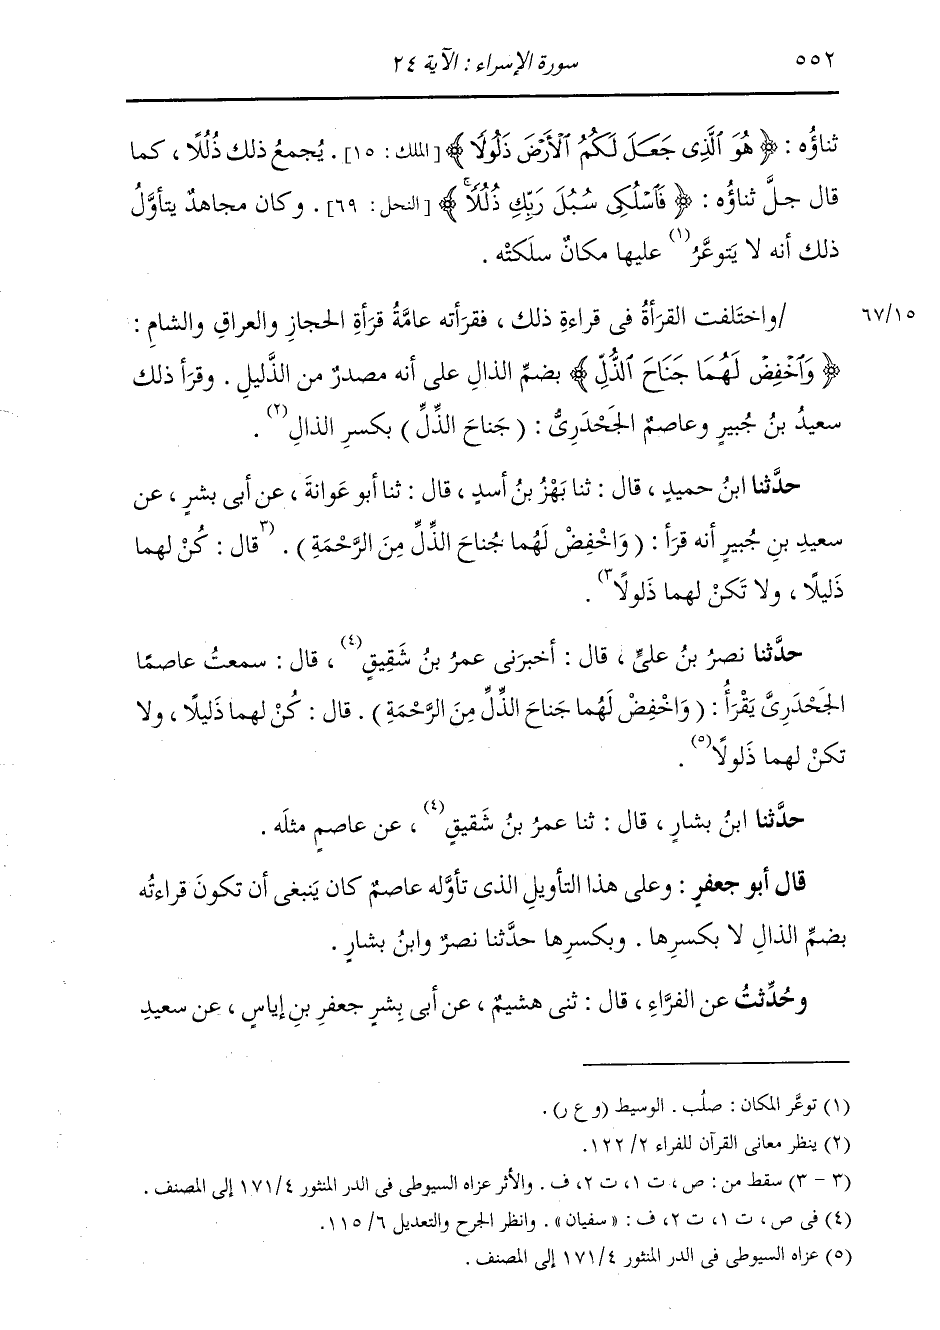 ٥٥٢
سورة الإسراء : الآية ٢٤
ثناؤُه : ﴿ هُوَ ٱلَّذِى جَعَلَ لَكُمُ ٱلْأَرْضَ ذَلُولًا ﴾ [الملك : ١٥] . يُجمعُ ذلك ذُلُلًا ، كما
قال جلَّ ثناؤُه : ﴿ فَٱسْلُكِى سُبُلَ رَبِّكِ ذُلُلًا ۚ ﴾ [النحل : ٦٩] . وكان مجاهدٌ يتأوَّلُ
ذلك أنه لا يَتوعَّرُ(١) عليها مكانٌ سلَكتْه .
٦٧/١٥
/واختَلفت القرَأةُ فى قراءةِ ذلك ، فقرَأته عامَّةُ قرَأةِ الحجازِ والعراقِ والشامِ :
﴿ وَٱخْفِضْ لَهُمَا جَنَاحَ ٱلذُّلِّ ﴾ بضمِّ الذالِ على أنه مصدرٌ من الذَّليلِ . وقرَأ ذلك
سعيدُ بنُ جُبيرٍ وعاصمٌ الجَحْدَرِىُّ : ( جَناحَ الذِّلِّ ) بكسرِ الذالِ(٢) .
حدَّثنا ابنُ حميدٍ ، قال : ثنا بَهْزُ بنُ أسدٍ ، قال : ثنا أبو عَوانةَ ، عن أبى بشرٍ ، عن
سعيدِ بنِ جُبيرٍ أنه قرَأ : ( وَاخْفِضْ لَهُما جُناحَ الذِّلِّ مِنَ الرَّحْمَةِ ) . (٣قال : كُنْ لهما
ذَليلًا ، ولا تَكنْ لهما ذَلولًا٣) .
حدَّثنا نصرُ بنُ علىٍّ ، قال : أخبرَنى عمرُ بنُ شَقِيقٍ(٤) ، قال : سمعتُ عاصمًا
الجَحْدَرِىَّ يَقْرَأُ : ( وَاخْفِضْ لَهُما جَناحَ الذِّلِّ مِنَ الرَّحْمَةِ ) . قال : كُنْ لهما ذَليلًا ، ولا
تكنْ لهما ذَلولًا(٥) .
حدَّثنا ابنُ بشارٍ ، قال : ثنا عمرُ بنُ شَقيقٍ(٤) ، عن عاصمٍ مثلَه .
قال أبو جعفرٍ : وعلى هذا التأويلِ الذى تأوَّله عاصمٌ كان يَنبغى أن تكونَ قراءتُه
بضمِّ الذالِ لا بكسرِها . وبكسرِها حدَّثنا نصرٌ وابنُ بشارٍ .
وحُدِّثتُ عن الفرَّاءِ ، قال : ثنى هشيمٌ ، عن أبى بِشرٍ جعفرِ بنِ إياسٍ ، عن سعيدِ
(١) توعَّر المكان : صلُب . الوسيط (و ع ر) .
(٢) ينظر معانى القرآن للفراء ١٢٢/٢ .
(٣ - ٣) سقط من : ص ، ت ١، ت ٢، ف . والأثر عزاه السيوطى فى الدر المنثور ١٧١/٤ إلى المصنف .
(٤) فى ص ، ت ١، ت ٢، ف : « سفيان » . وانظر الجرح والتعديل ١١٥/٦ .
(٥) عزاه السيوطى فى الدر المنثور ١٧١/٤ إلى المصنف .